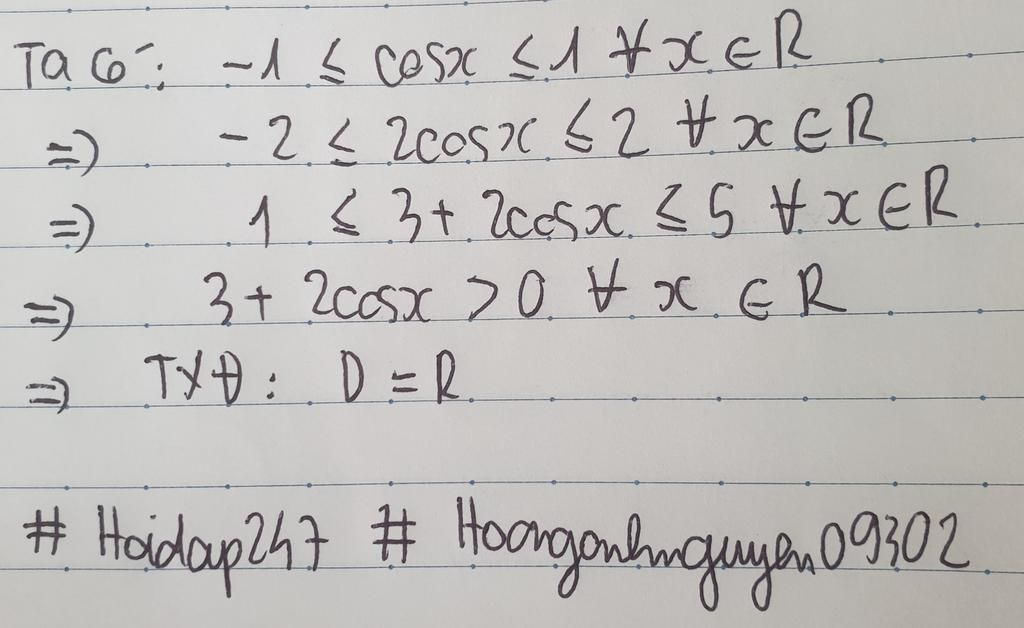 Ta có: -1 ≤ cosx ≤ 1 ∀ x ∈ R
=> -2 ≤ 2cosx ≤ 2 ∀ x ∈ R
=> 1 ≤ 3 + 2cosx ≤ 5 ∀ x ∈ R
=> 3 + 2cosx > 0 ∀ x ∈ R
=> TXĐ: D = R
# Hoidap247 # Hoanganhnguyen09302